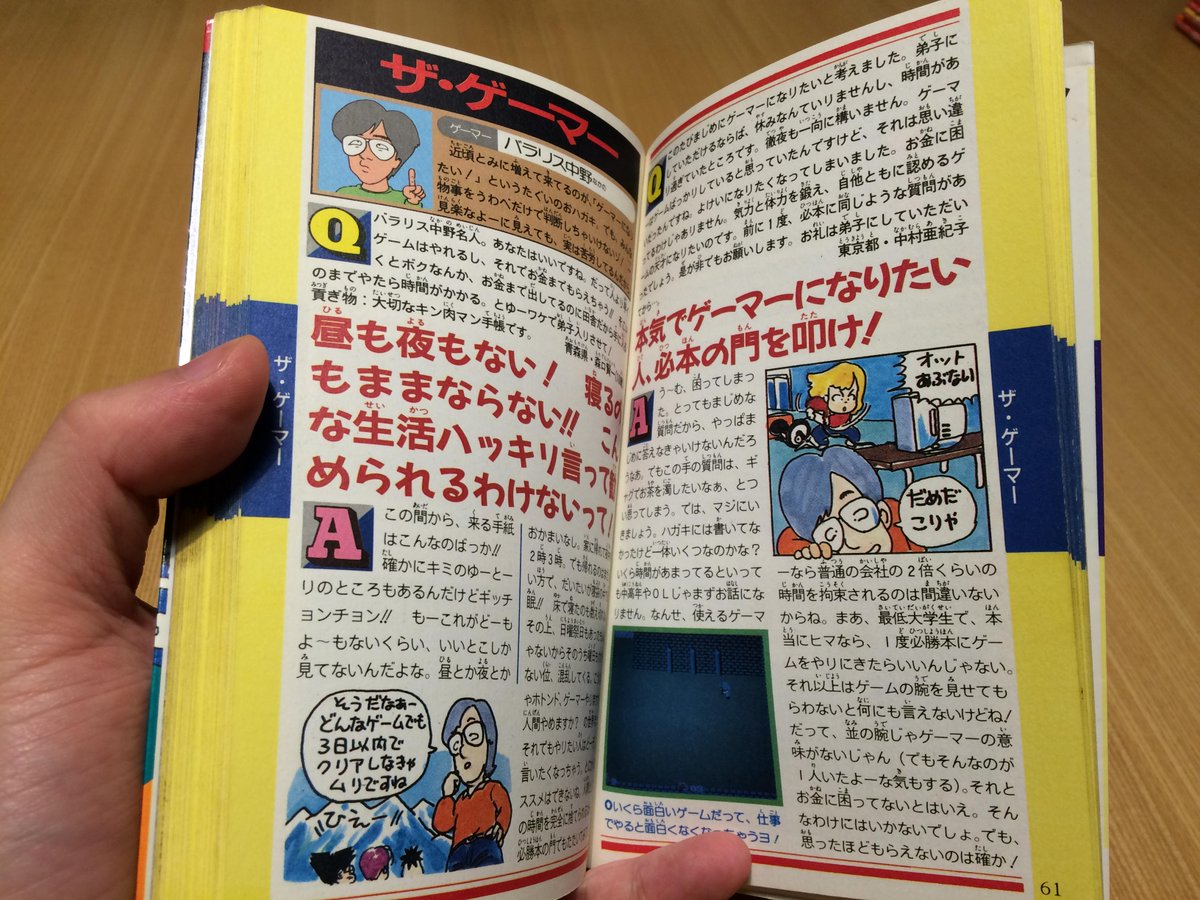 ザ・ゲーマー
ゲーマー
バラリス中野
なかの
近頃とみに増えて来てるのが、「ゲーマーになり
たい!」というたぐいのおハガキ。でも、みんな
物事をうわべだけで判断しちゃいけないゾ!
見楽なよーに見えても、実は苦労してるんだ
Q
バラリス中野名人。あなたはいいですね。だって人より早く
ゲームはやれるし、それでお金までもらえちゃう!!
くとボクなんか、お金まで出してるのに田舎だから
のまでやたら時間がかかる。とゆーワケで弟子入りさせて!
貢ぎ物:大切なキン肉マン手帳です。
青森県・森口賢
昼も夜もない! 寝るの
もままならない!! こん
な生活ハッキリ言って勧
められるわけないって!
A
この間から、来る手紙
はこんなのばっか!!
確かにキミのゆーとー
りのところもあるんだけどギッチ
ョンチョン!! もーこれがどーも
よ〜もないくらい、いいとこしか
見てないんだよな。昼とか夜とか
おかまいなし。家に帰
2時3時。でも帰れるのは
い方で、だいたいが
眠!! 床で寝たのも数え
その上、日曜祭日もあった
ゃないからそのうち曜日も
ない位、混乱してくる。こ
やホトンド、ゲーマーやりますか
人間やめますか? の世界
それでもやりたい人は
言いたくなっちゃう。と
ススメはできないね。
の時間を完全に捨てられ
必勝本の門でもたたいて
そうだなぁー
どんなゲームでも
3日以内で
クリアしなきゃ
ムリですね
ひえー
ザ・ゲーマー
Q
このたびまじめにゲーマーになりたいと考えました。弟子に
していただけるならば、休みなんていりませんし、時間があ
り過ぎていたところです。徹夜も一向に構いません。ゲーマ
ーはゲームばっかりしていると思っていたんですけど、それは思い違
いだったんですね。よけいになりたくなってしまいました。お金に困
ってるわけじゃありません。気力と体力を鍛え、自他ともに認めるゲ
ームの天才になりたいのです。前に1度、必本に同じような質問があ
ったでしょう。是が非でもお願いします。お礼は弟子にしていただい
てから…。
東京都・中村亜紀子
本気でゲーマーになりたい
人、必本の門を叩け!
A
う〜む、困ってしまっ
た。とってもまじめな
質問だから、やっぱま
じめに答えなきゃいけないんだろ
うなあ。でもこの手の質問は、ギ
ャグでお茶を濁したいなぁ、とつ
い思ってしまう。では、マジにい
きましょう。ハガキには書いてな
かったけど一体いくつなのかな?
いくら時間があまってるといって
も中高年やOLじゃまずお話にな
りません。なんせ、使えるゲーマ
オット
あぶない
だめだ
こりゃ
ーなら普通の会社の2倍くらいの
時間を拘束されるのは間違いない
からね。まあ、最低大学生で、本
当にヒマなら、1度必勝本にゲー
ムをやりにきたらいいんじゃない。
それ以上はゲームの腕を見せても
らわないと何にも言えないけどね!
だって、並の腕じゃゲーマーの意
味がないじゃん(でもそんなのが
1人いたよーな気もする)。それと
お金に困ってないとはいえ。そん
なわけにはいかないでしょ。でも、
思ったほどもらえないのは確か!
いくら面白いゲームだって、仕事
でやると面白くなくなっちゃうヨ!
ザ・ゲーマー
61